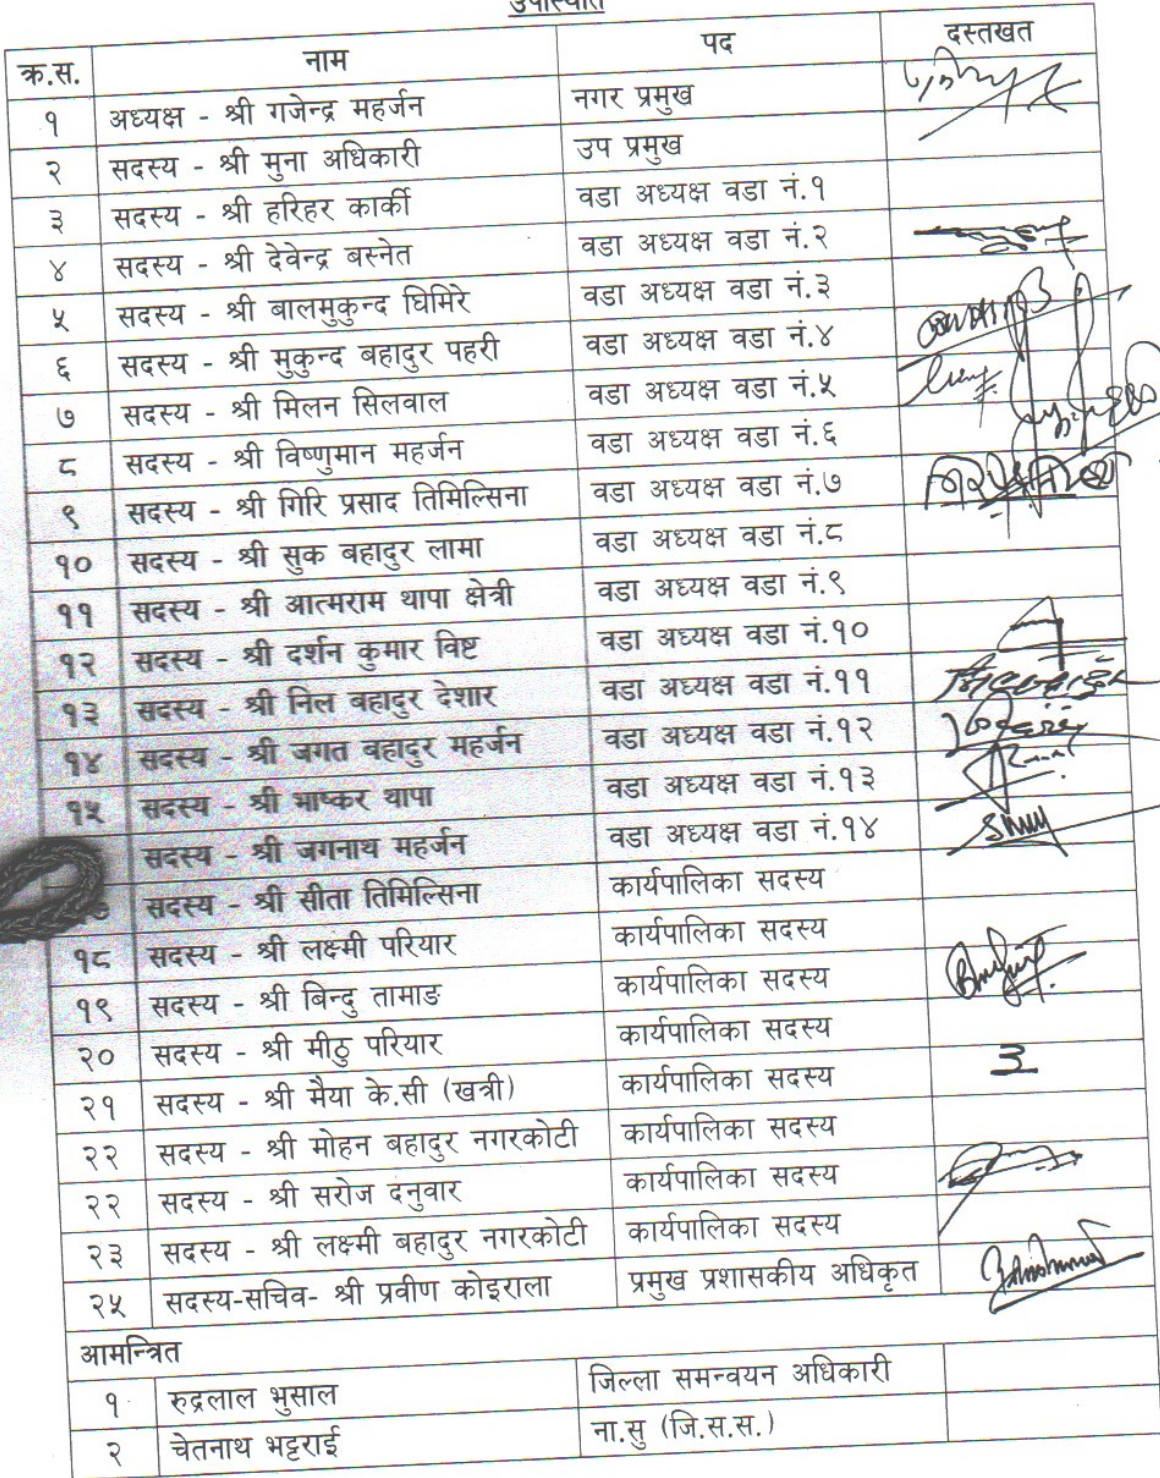 उपस्थिति
क्र.स. नाम पद दस्तखत
१ अध्यक्ष - श्री गजेन्द्र महर्जन नगर प्रमुख
२ सदस्य - श्री मुना अधिकारी उप प्रमुख
३ सदस्य - श्री हरिहर कार्की वडा अध्यक्ष वडा नं.१
४ सदस्य - श्री देवेन्द्र बस्नेत वडा अध्यक्ष वडा नं.२
५ सदस्य - श्री बालमुकुन्द घिमिरे वडा अध्यक्ष वडा नं.३
६ सदस्य - श्री मुकुन्द बहादुर पहरी वडा अध्यक्ष वडा नं.४
७ सदस्य - श्री मिलन सिलवाल वडा अध्यक्ष वडा नं.५
८ सदस्य - श्री विष्णुमान महर्जन वडा अध्यक्ष वडा नं.६
९ सदस्य - श्री गिरि प्रसाद तिमिल्सिना वडा अध्यक्ष वडा नं.७
१० सदस्य - श्री सुक बहादुर लामा वडा अध्यक्ष वडा नं.८
११ सदस्य - श्री आत्मराम थापा क्षेत्री वडा अध्यक्ष वडा नं.९
१२ सदस्य - श्री दर्शन कुमार विष्ट वडा अध्यक्ष वडा नं.१०
१३ सदस्य - श्री निल बहादुर देशार वडा अध्यक्ष वडा नं.११
१४ सदस्य - श्री जगत बहादुर महर्जन वडा अध्यक्ष वडा नं.१२
१५ सदस्य - श्री भाष्कर थापा वडा अध्यक्ष वडा नं.१३
सदस्य - श्री जगनाथ महर्जन वडा अध्यक्ष वडा नं.१४
७ सदस्य - श्री सीता तिमिल्सिना कार्यपालिका सदस्य
१८ सदस्य - श्री लक्ष्मी परियार कार्यपालिका सदस्य
१९ सदस्य - श्री बिन्दु तामाङ कार्यपालिका सदस्य
२० सदस्य - श्री मीठु परियार कार्यपालिका सदस्य
२१ सदस्य - श्री मैया के.सी (खत्री) कार्यपालिका सदस्य
२२ सदस्य - श्री मोहन बहादुर नगरकोटी कार्यपालिका सदस्य
२२ सदस्य - श्री सरोज दनुवार कार्यपालिका सदस्य
२३ सदस्य - श्री लक्ष्मी बहादुर नगरकोटी कार्यपालिका सदस्य
२५ सदस्य-सचिव- श्री प्रवीण कोइराला प्रमुख प्रशासकीय अधिकृत
आमन्त्रित
१ रुद्रलाल भुसाल जिल्ला समन्वयन अधिकारी
२ चेतनाथ भट्टराई ना.सु (जि.स.स.)